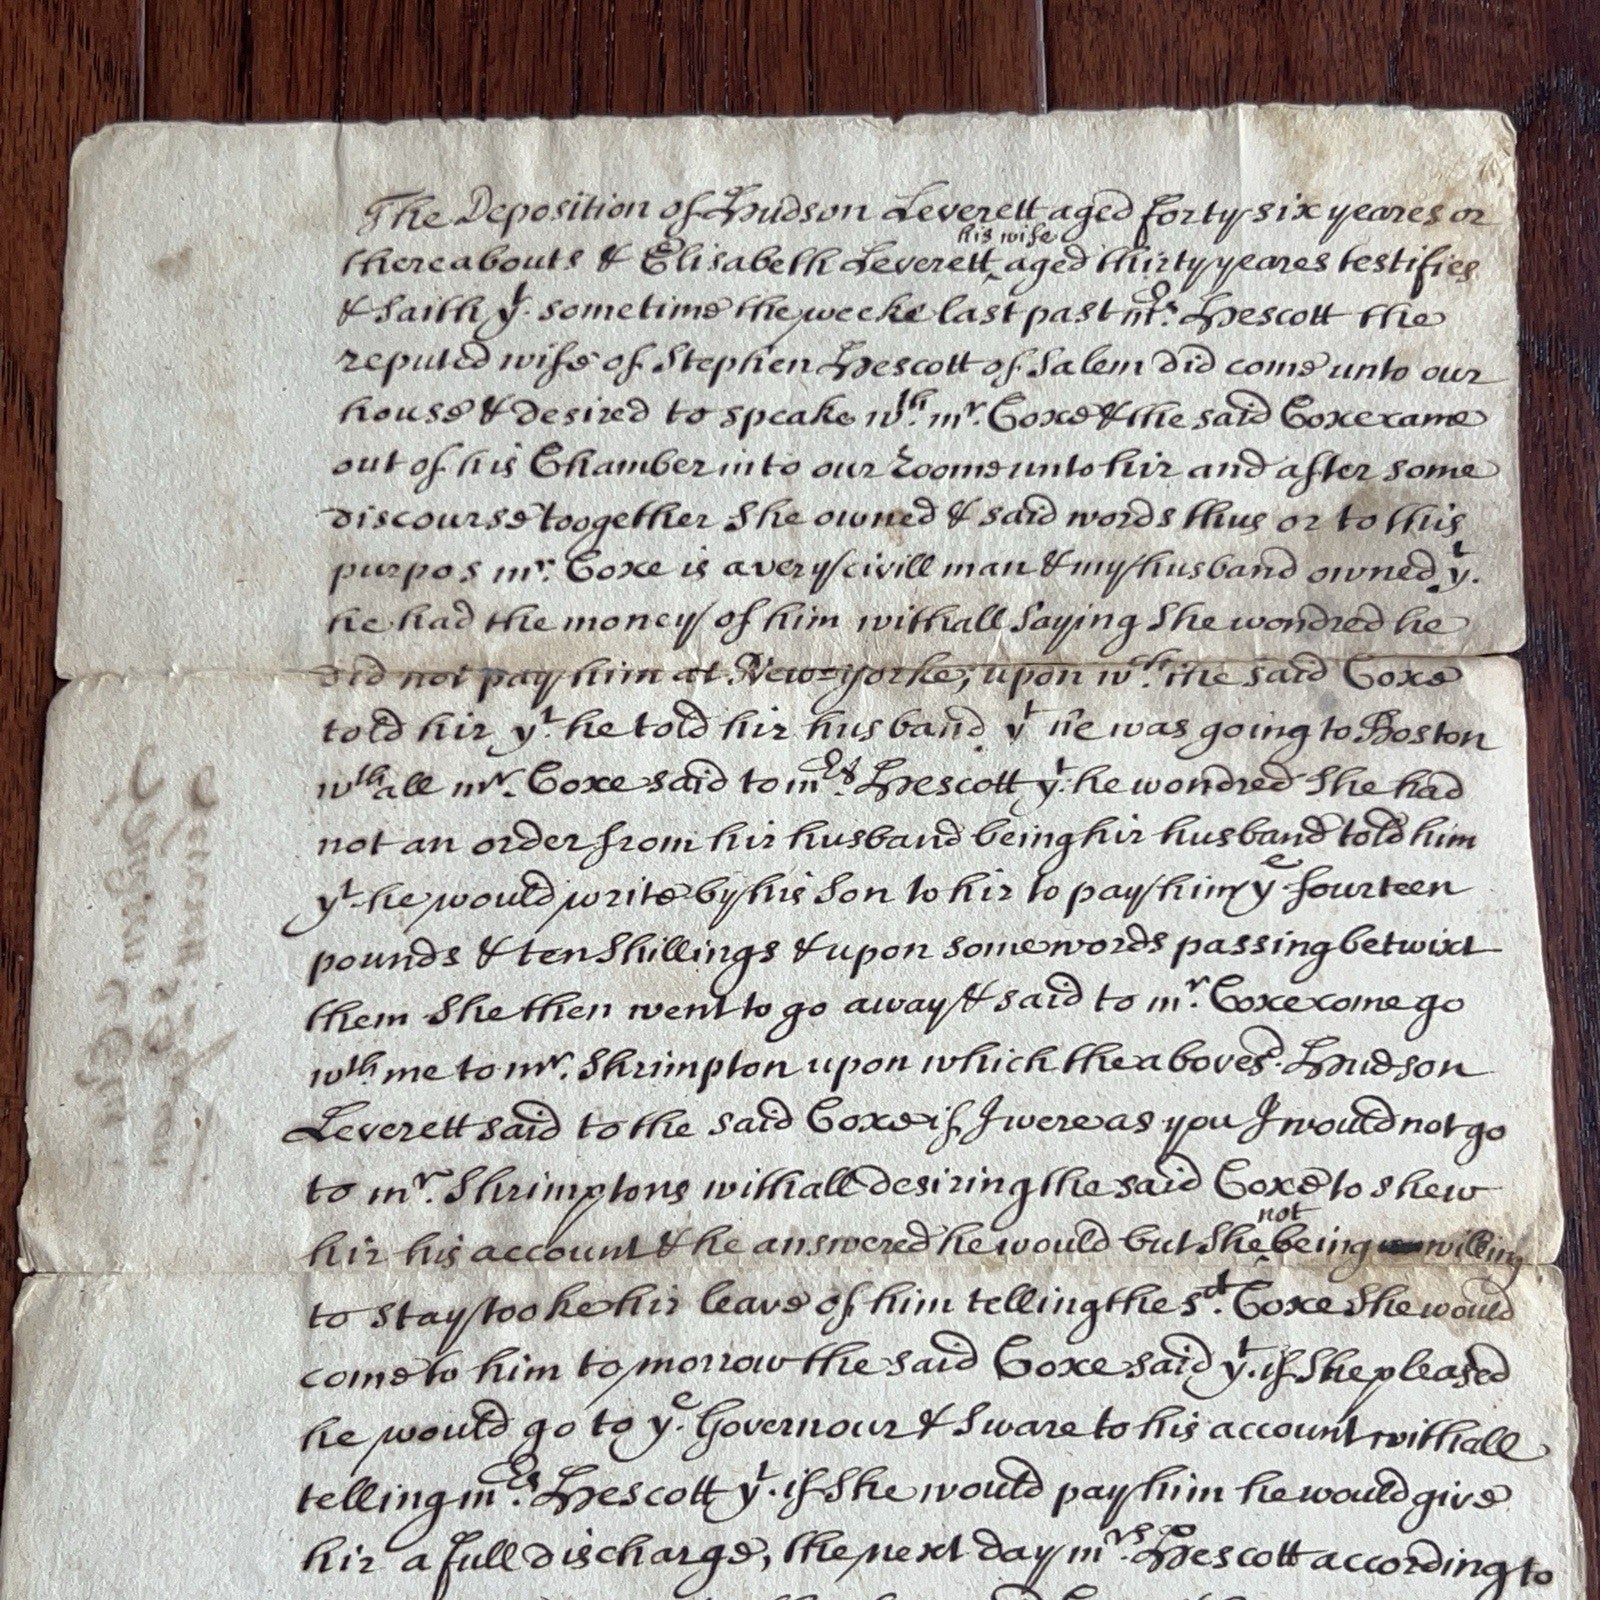 The Deposition of Hudson Leverett aged forty six yeares or
thereabouts & Elisabeth Leverett his wife aged thirty yeares testifies
& saith yt. sometime the weeke last past mrs. Hescott the
reputed wife of Stephen Hescott of Salem did come unto our
house & desired to speake wth. mr. Coxe & the said Coxe came
out of his Chamber into our Roome unto hir and after some
discourse toogether She owned & said words thus or to this
purpos mr. Coxe is a very civill man & my husband owned yt.
he had the money of him withall Saying She wondred he
did not pay him at New=yorke, upon wch. the said Coxe
told hir yt. he told hir husband yt he was going to Boston
wthall mr. Coxe said to mrs. Hescott yt. he wondred She had
not an order from hir husband being hir husband told him
yt. he would write by his Son to hir to pay him ye. fourteen
pounds & ten Shillings & upon some words passing betwixt
them She then went to go away & said to mr. Coxe come go
wth. me to mr. Shrimpton upon which the abovesd. Hudson
Leverett said to the said Coxe if I were as you I would not go
to mr. Shrimptons withall desiring the said Coxe to shew
hir his account & he answered he would but She not being willing
to stay tooke hir leave of him telling the sd. Coxe She would
come to him to morrow the said Coxe said yt. if She pleased
he would go to ye. Governour & Sware to his account withall
telling mrs. Hescott yt. if She would pay him he would give
hir a full discharge, the next day mrs. Hescott according to